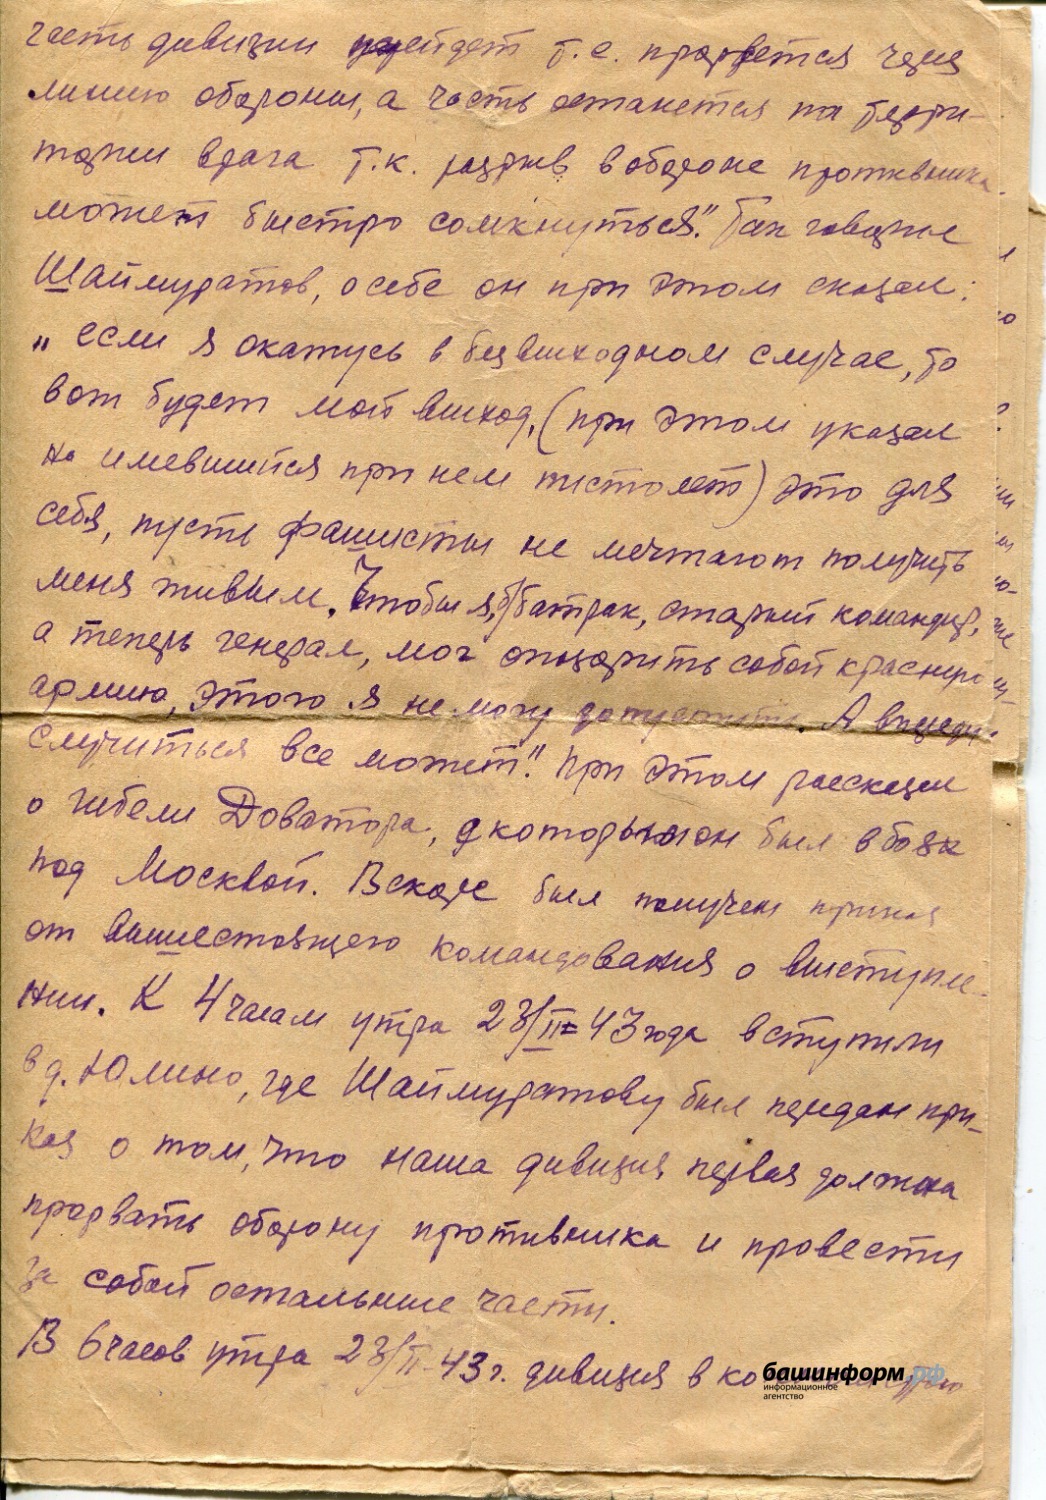 часть дивизии перейдет т.е. прорвется через
линию обороны, а часть останется на терри-
тории врага т.к. разрыв в обороне противника
может быстро сомкнуться". Так говорил
Шаймуратов, о себе он при этом сказал:
„если я окажусь в безвыходном случае, то
вот будет мой выход, (при этом указал
на имевшийся при нем пистолет) это для
себя, пусть фашисты не мечтают получить
меня живым. Чтобы я, б/батрак, старый командир,
а теперь генерал, мог опозорить собой красную
армию, этого я не могу допустить. А впереди
случиться все может". При этом рассказал
о гибели Доватора, с которым он был в боях
под Москвой. Вскоре был получен приказ
от вышестоящего командования о выступле-
нии. К 4 часам утра 23/II-43 года вступили
в д. Юлино, где Шаймуратову был передан при-
каз о том, что наша дивизия первая должна
прорвать оборону противника и провести
за собой остальные части.
В 6 часов утра 23/II-43 г. дивизия в
башинформ.рф
информационное
агентство